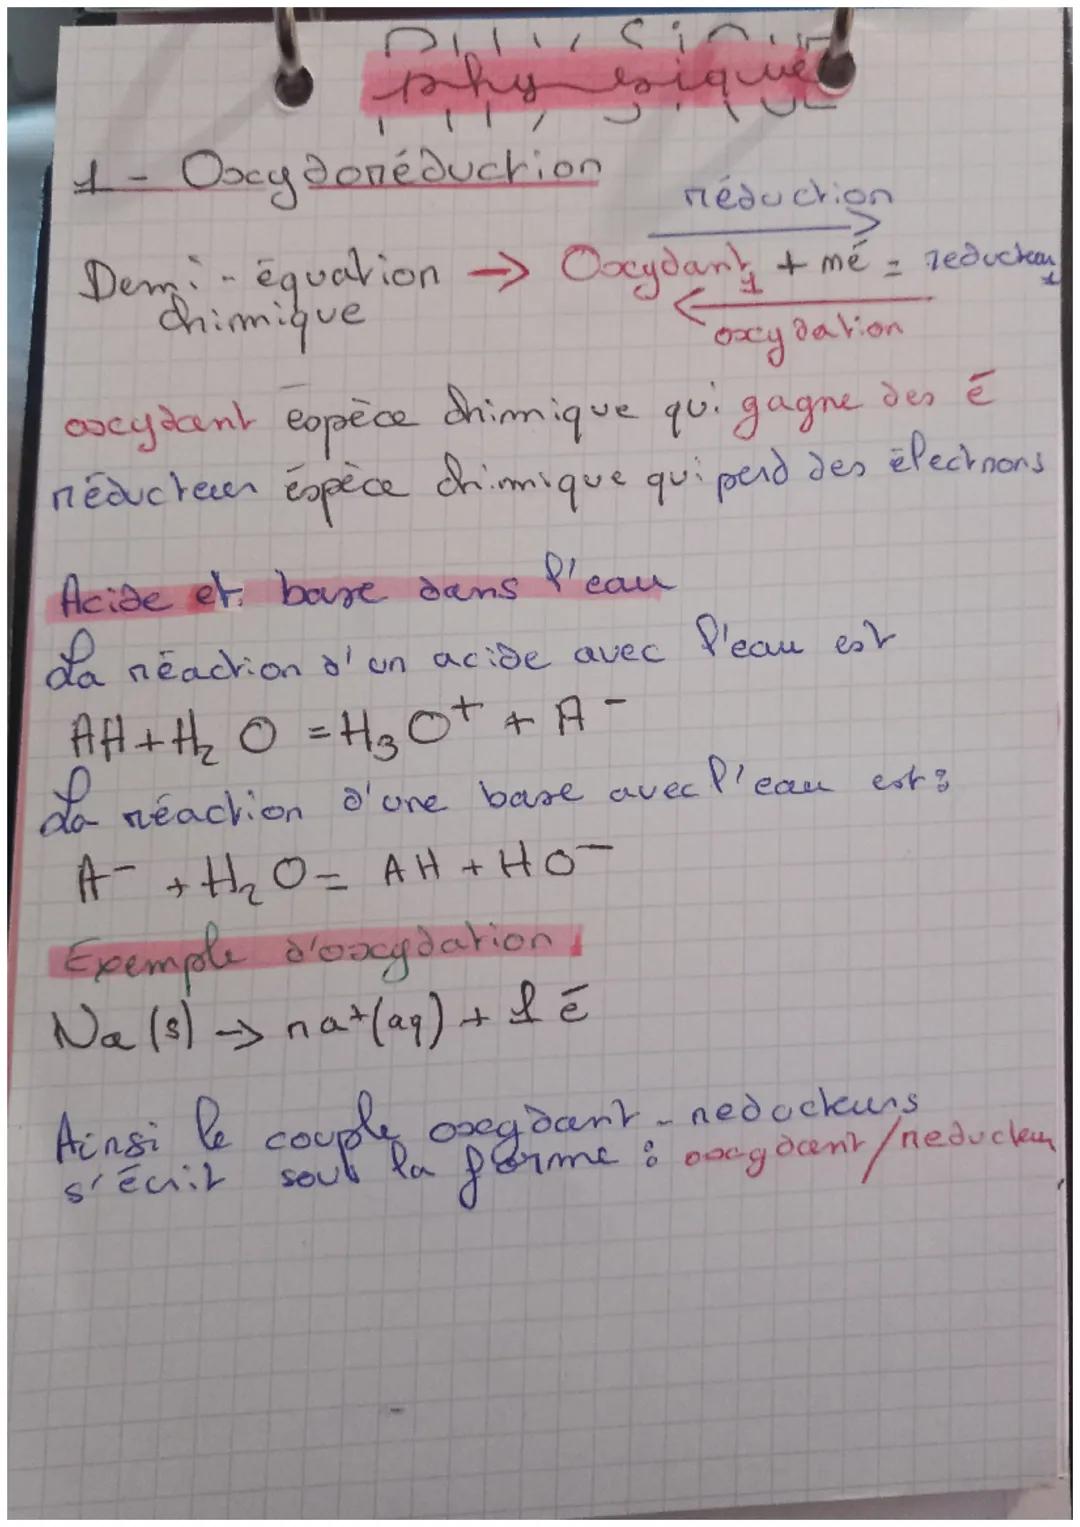 physique
1 - Oxydoréduction
réduction
Demi-équation → Oxydant₁ + mé = réducteur₁
chimique
oxydation
oxydant espèce chimique qui gagne des é
réducteur éspèce chimique qui perd des électrons
Acide et base dans l'eau
La réaction d'un acide avec l'eau est
AH + H₂O = H₃O⁺ + A⁻
La réaction d'une base avec l'eau est :
A⁻ + H₂O = AH + HO⁻
Exemple d'oxydation :
Na (s) → na⁺(aq) + 1 é
Ainsi le couple oxydant - reducteurs
s'écrit sous la forme : oxydant/reducteur